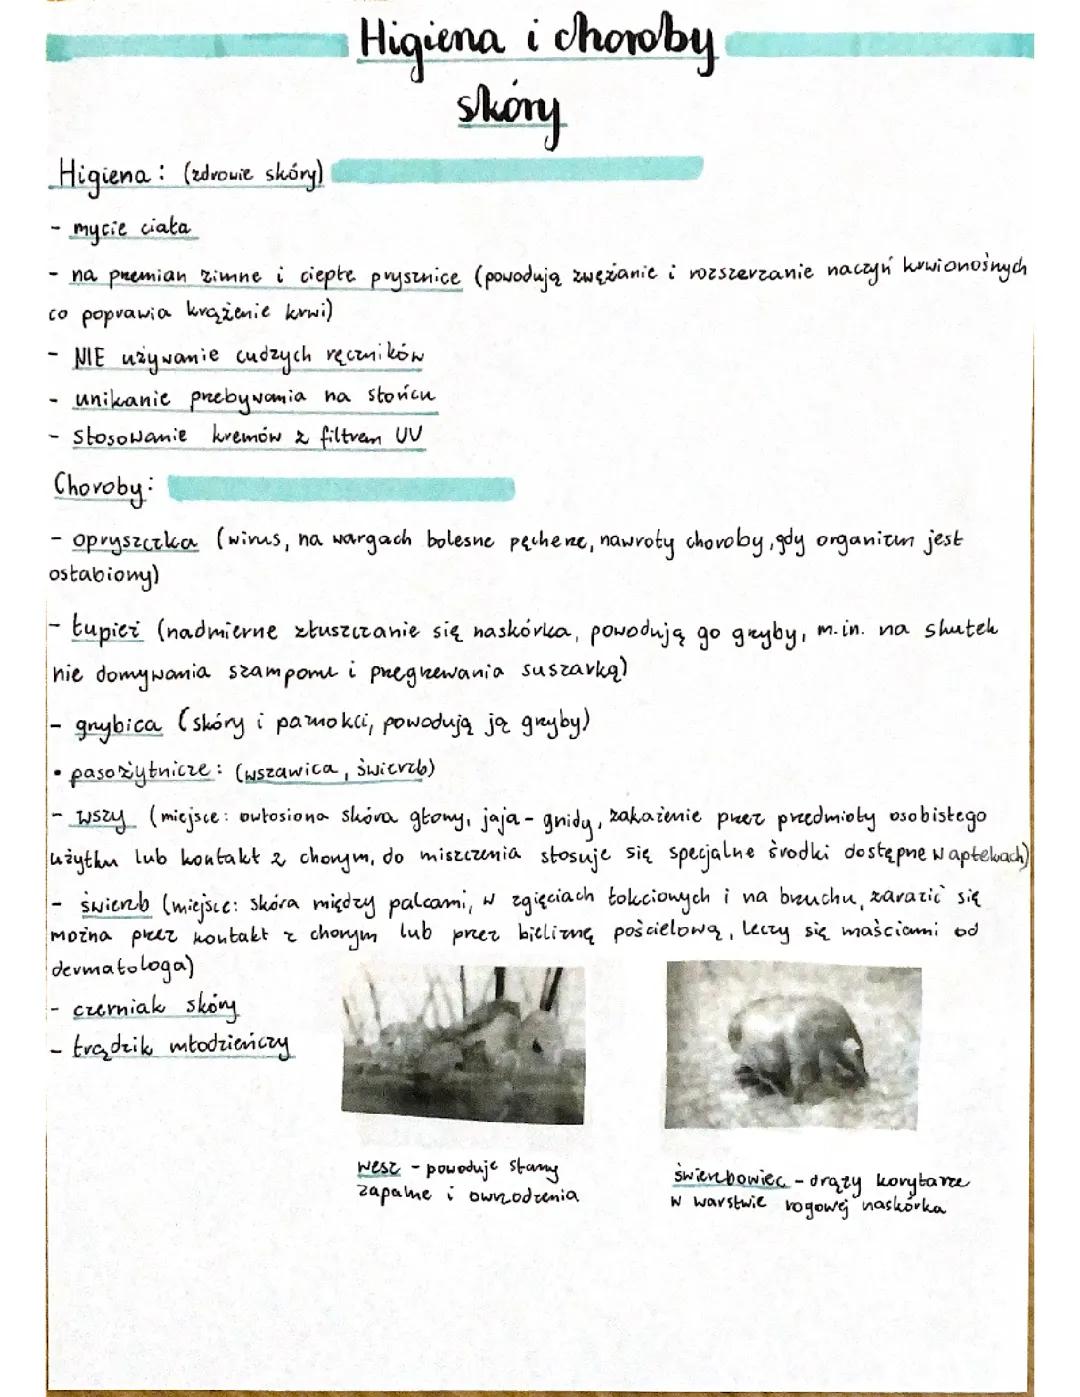 Higiena i choroby
skóry
Higiena: (zdrowie skóry)
- mycie ciała
- na przemian zimne i ciepłe prysznice (powodują zwężanie i rozszerzanie naczyń krwionośnych
co poprawia krążenie krwi)
- NIE używanie cudzych ręczników
- unikanie przebywania na słońcu
- stosowanie kremów z filtrem UV
Choroby:
- opryszczka (wirus, na wargach bolesne pęcherze, nawroty choroby, gdy organizm jest
osłabiony)
- łupież (nadmierne złuszczanie się naskórka, powodują go grzyby, m.in. na skutek
nie domywania szamponu i przegrzewania suszarką)
- grzybica (skóry i paznokci, powodują ją grzyby)
• pasożytnicze: (wszawica, świerzb)
- wszy (miejsce: owłosiona skóra głowy, jaja - gnidy, zakażenie przez przedmioty osobistego
użytku lub kontakt z chorym, do niszczenia stosuje się specjalne środki dostępne w aptekach)
- świerzb (miejsce: skóra między palcami, w zgięciach łokciowych i na brzuchu, zarazić się
można przez kontakt z chorym lub przez bieliznę pościelową, leczy się maściami od
dermatologa)
- czerniak skóry
- trądzik młodzieńczy
wesz - powoduje stany
zapalne i owrzodzenia
świerzbowiec - drąży korytarze
w warstwie rogowej naskórka